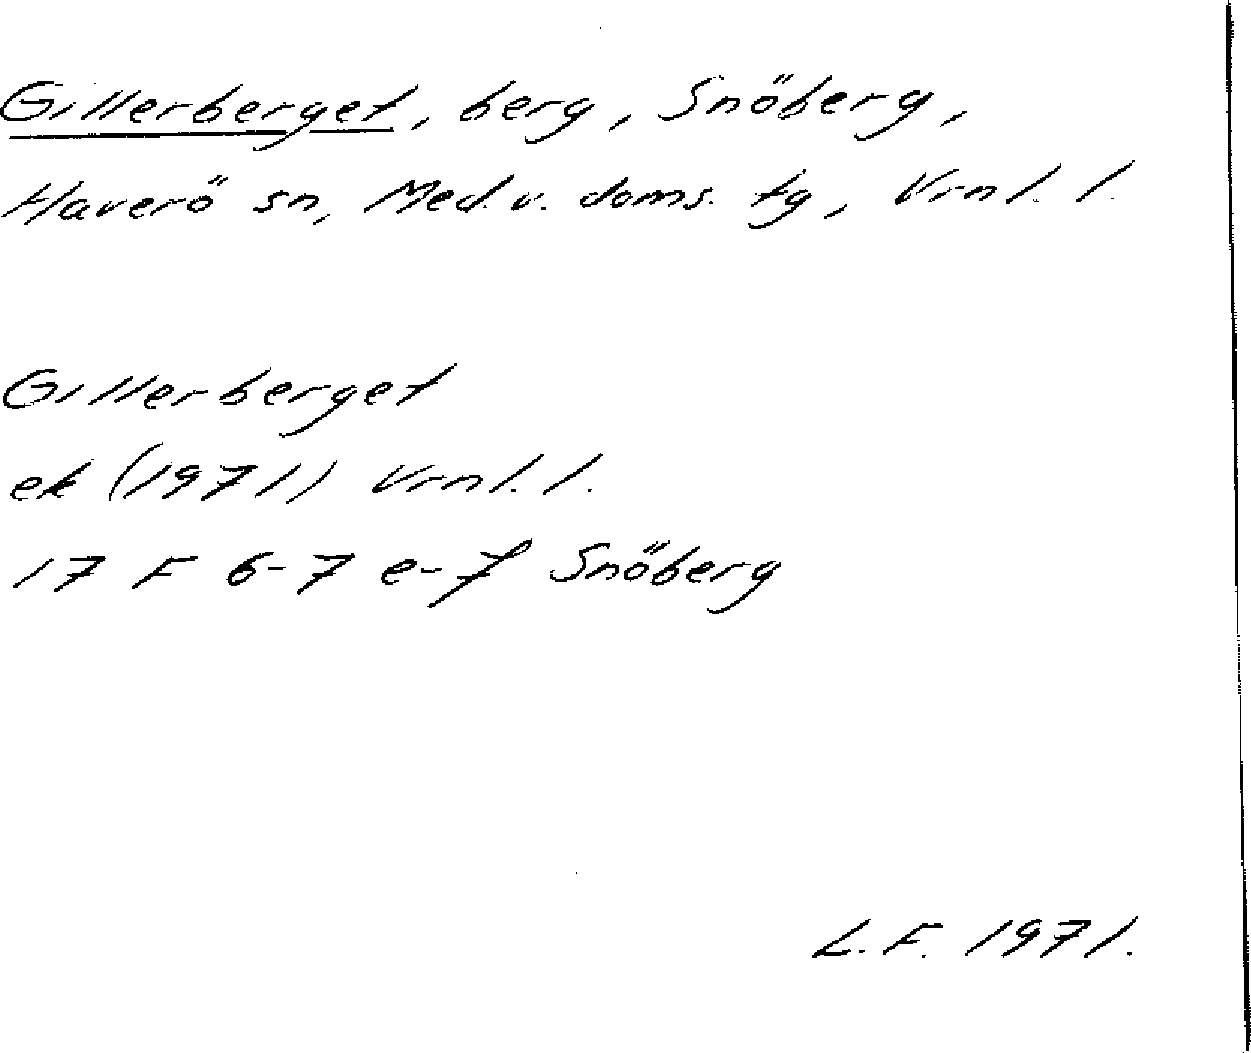 Gillerberget, berg, Snöberg,
Haverö sn, Med. v. doms. tg, Vrnl. l.
Gillerberget
ek (1971) Vrnl. l.
17 F 6-7 e-f Snöberg
L. F. 1971.